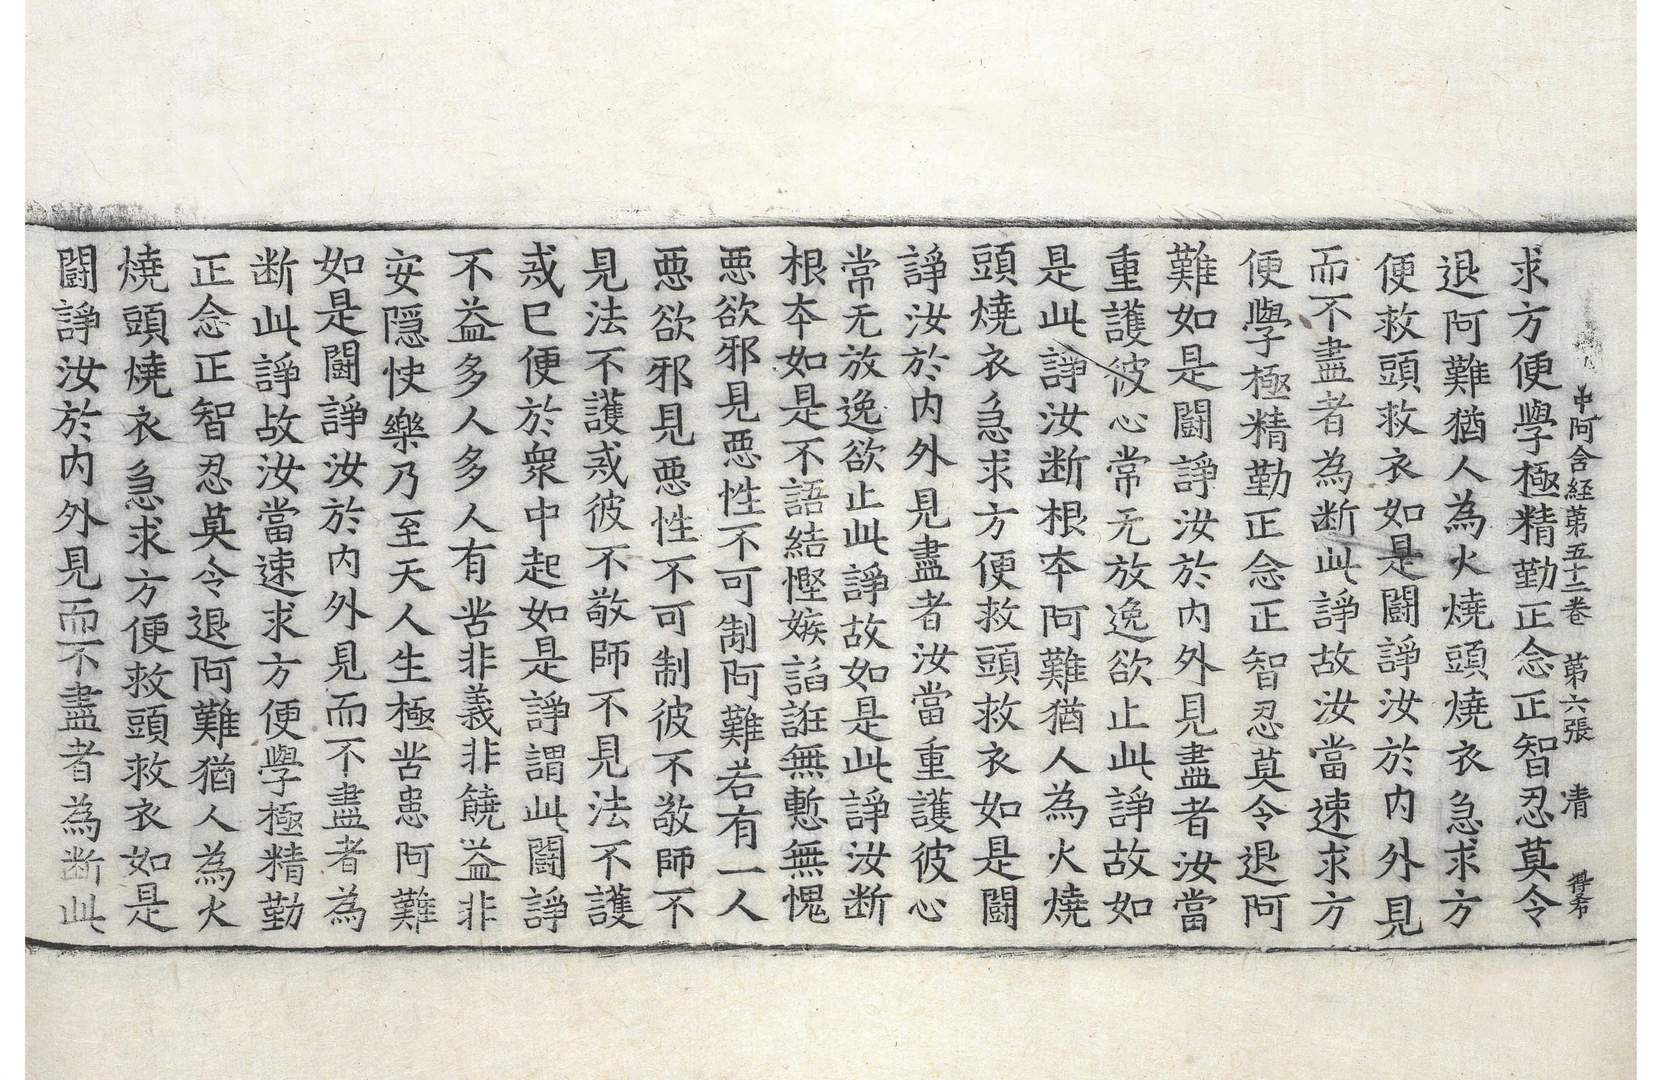 中阿含経第五十二巻 第六張 清 得布
求方便學極精勤正念正智忍莫令
退阿難猶人為火燒頭燒衣急求方
便救頭救衣如是鬪諍汝於内外見
而不盡者為断此諍故汝當速求方
便學極精勤正念正智忍莫令退阿
難如是鬪諍汝於内外見盡者汝當
重護彼心常无放逸欲止此諍故如
是此諍汝断根夲阿難猶人為火燒
頭燒衣急求方便救頭救衣如是鬪
諍汝於内外見盡者汝當重護彼心
常无放逸欲止此諍故如是此諍汝断
根夲如是不語結慳嫉諂誑無慙無愧
惡欲邪見惡性不可制阿難若有一人
惡欲邪見惡性不可制彼不敬師不
見法不護戒彼不敬師不見法不護
戒巳便於衆中起如是諍謂此鬪諍
不益多人多人有苦非義非饒益非
安隱快樂乃至天人生極苦患阿難
如是鬪諍汝於内外見而不盡者為
断此諍故汝當速求方便學極精勤
正念正智忍莫令退阿難猶人為火
燒頭燒衣急求方便救頭救衣如是
鬪諍汝於内外見而不盡者為断此